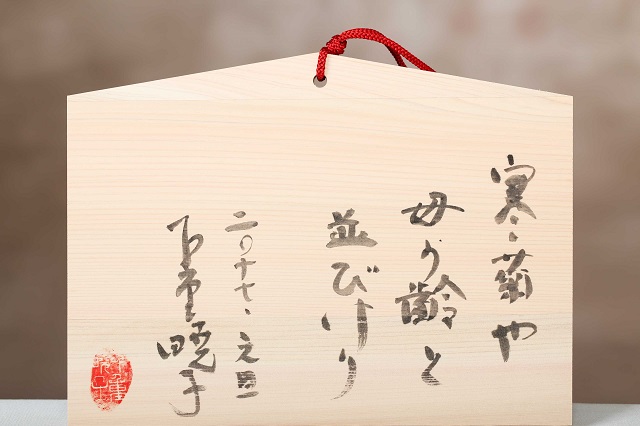 寒菊や
母の齢と
並びけり
二〇十七、元旦
下重暁子